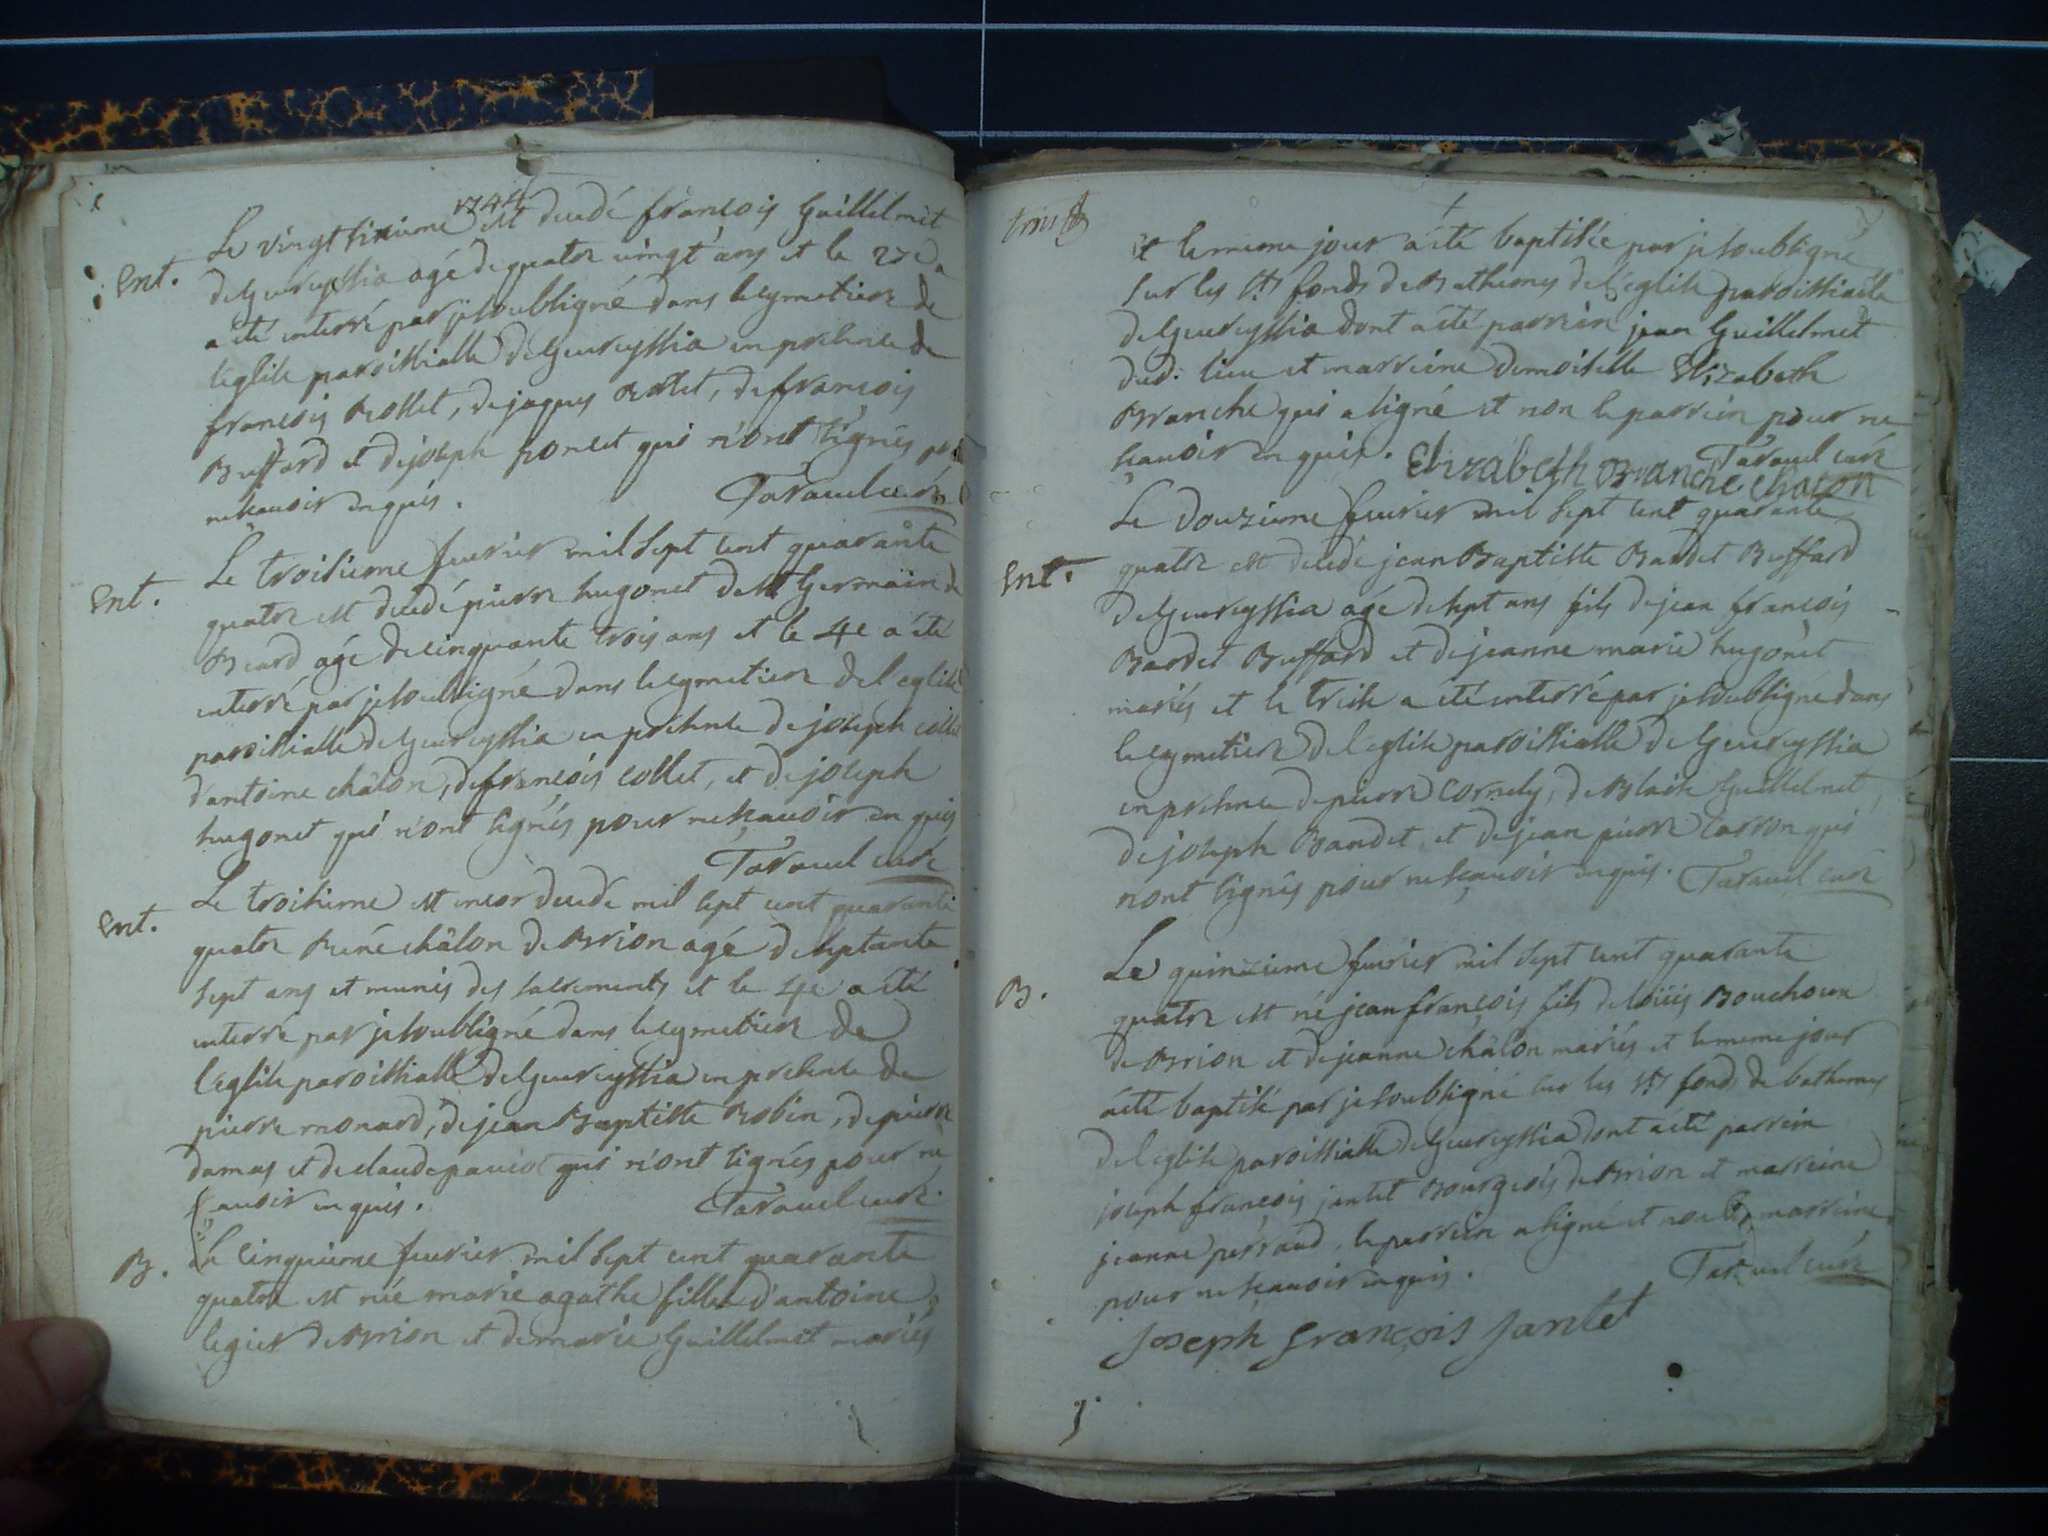 1744
Ent. Le vingt sixieme est decedé françois Guillelmet
de Geureyssia agé de quatre vingt ans et le 27e
a été enterré par je soubsigné dans le cymetiere de
l'eglise paroissialle de Geureyssia en presence de
françois Rollet, de jaques Rollet, de françois
Buffard et de joseph poncet qui n'ont signés pr
ne scavoir enquis. Taravel curé
Ent. Le troisieme feurier mil sept cent quarante
quatre est decedé pierre hugonet de St Germain de
Beard agé de cinquante trois ans et le 4e a été
enterré par je soubsigné dans le cymetiere de l'eglise
paroissialle de Geureyssia en presence de joseph collet
d'antoine châlon, de françois collet, et de joseph
hugonet qui n'ont signés pour ne scavoir enquis
Taravel curé
Ent. Le troisieme est encor decedé mil sept cent quarante
quatre René châlon de Brion agé de septante
sept ans et munis des sacrements et le 4e a été
enterré par je soubsigné dans le cymetiere de
l'eglise paroissialle de Geureyssia en presence de
pierre monard, de jean Baptiste Robin, de pierre
damas et de claude qui n'ont signés pour ne
scavoir enquis. Taravel curé
B. Le cinquieme feurier mil sept cent quarante
quatre est née marie agathe fille d'antoine
legier de Brion et de marie Guillelmet mariés
et le meme jour a été baptisée par je soubsigné
sur les Sts fonds de Bathemes de l'eglise paroissialle
de Geureyssia dont a été parrein jean Guillelmet
dud. lieu et marreine demoiselle Elizabeth
Branche qui a signé et non le parrein pour ne
scauoir enquis. Taravel curé
Elizabeth Branche chalon
Le douzieme feurier mil sept cent quarante
Ent. quatre est decedé jean Baptiste Bardet Buffard
de Geureyssia agé de sept ans fils de jean françois
Bardet Buffard et de jeanne marie hugonet
mariés et le treise a été enterré par je soubsigné dans
le cymetiere de l'eglise paroissialle de Geureyssia
en presence de pierre Cornely, de Blaise Guillelmet,
de joseph Bandet, et de jean pierre Carron qui
n'ont signés pour ne scavoir enquis. Taravel curé
Le quinzieme feurier mil sept cent quarante
B. quatre est né jean françois fils de loüis Bouchoux
de Brion et de jeanne châlon mariés et le meme jour
a été baptisé par je soubsigné sur les Sts fonds de bathemes
de l'eglise paroissialle de Geureyssia dont a été parrein
joseph françois jantet Bourgeois de Brion et marreine
jeanne perraud, le parrein a signé et non la marreine
pour ne scauoir enquis. Taravel curé
Joseph François Jantet